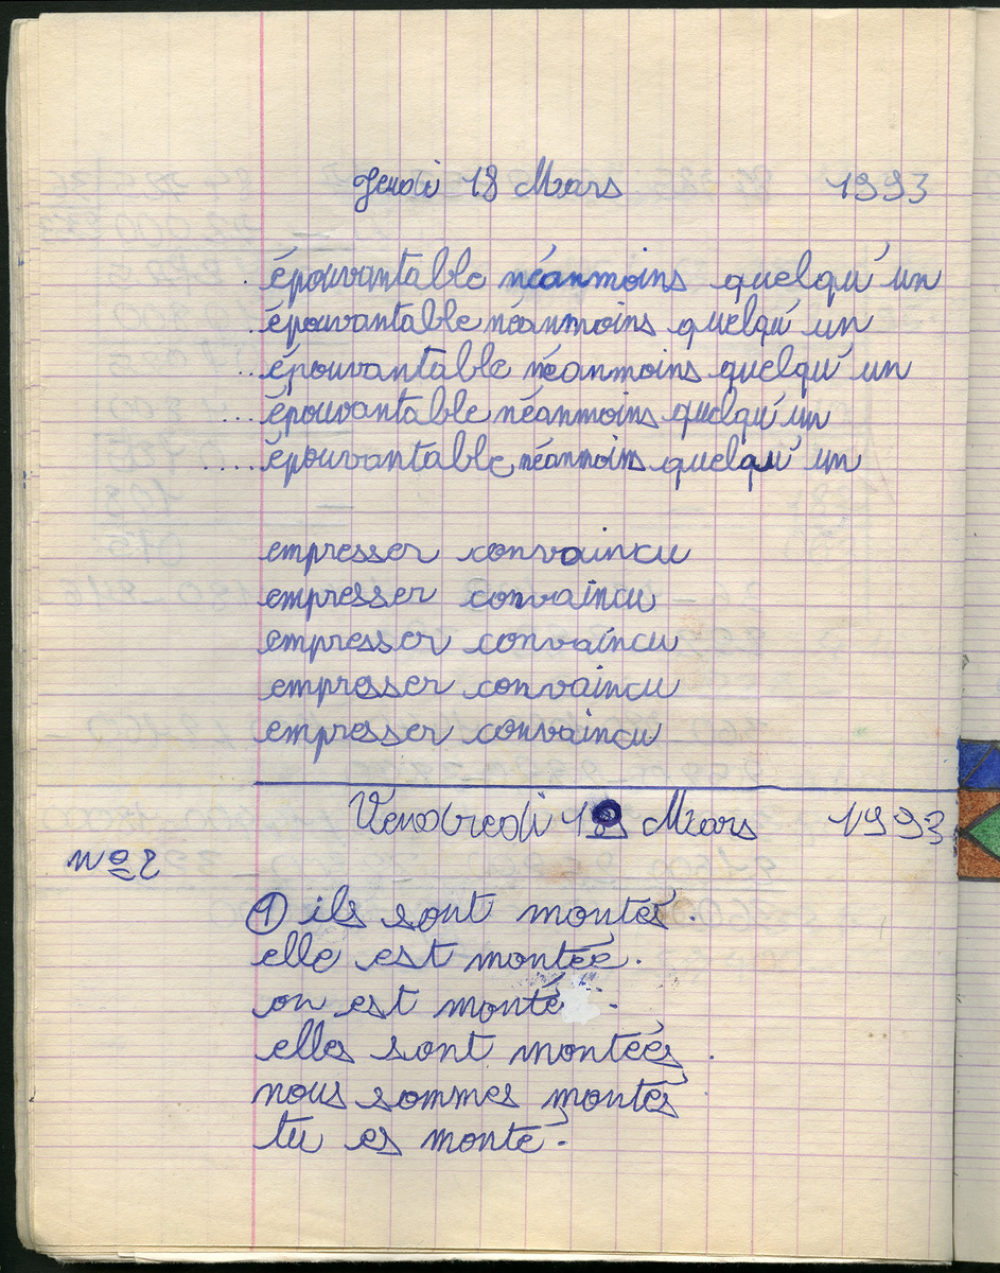 Jeudi 18 Mars 1993
. épouvantable néanmoins quelqu'un
.. épouvantable néanmoins quelqu'un
... épouvantable néanmoins quelqu'un
.... épouvantable néanmoins quelqu'un
..... épouvantable néanmoins quelqu'un
empresser convaincu
empresser convaincu
empresser convaincu
empresser convaincu
empresser convaincu
Vendredi 19 Mars 1993
nº2
① ils sont montés.
elle est montée.
on est monté.
elles sont montées.
nous sommes montés
tu es monté.